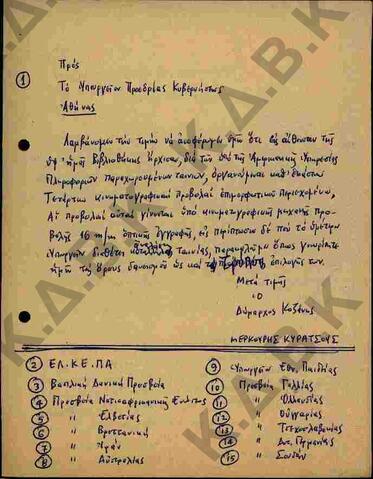 ①
Πρός
Τὸ Ὑπουργεῖον Προεδρίας Κυβερνήσεως
Ἀθήνας
Λαμβάνομεν τὴν τιμὴν νὰ ἀναφέρωμεν ὑμῖν ὅτι εἰς αἴθουσαν τῆς
ὑφ' ἡμᾶς Βιβλιοθήκης ἤρχισαν, διὰ τῶν ὑπὸ τῆς Ἀμερικανικῆς Ὑπηρεσίας
Πληροφοριῶν παραχωρουμένων ταινιῶν, ὀργανοῦνται καθ' ἑκάστην
Τετάρτην κινηματογραφικαὶ προβολαὶ ἐπιμορφωτικοῦ περιεχομένου.
Αἱ προβολαὶ αὗται γίνονται ὑπὸ κινηματογραφικῆς μηχανῆς προ-
βολῆς 16 m/m ὀπτικῆς ἐγγραφῆς, εἰς περίπτωσιν δὲ ποὺ τὸ ὑμέτερον
Ὑπουργεῖον διαθέτει ταινίας, παρακαλοῦμεν ὅπως γνωρίσητε
ἡμῖν τοὺς ὅρους δανεισμοῦ ὡς καὶ τρόπον ἐπιλογῆς των.
Μετὰ τιμῆς
ὁ
Δήμαρχος Κοζάνης
ΜΕΡΚΟΥΡΗΣ ΚΥΡΑΤΣΟΥΣ
② ΕΛ.ΚΕ.ΠΑ
③ Βασιλικὴ Δανικὴ Πρεσβεία
④ Πρεσβεία Νοτιοαφρικανικῆς Ἑνώσεως
⑤ " Ἑλβετίας
⑥ " Βρεττανικὴ
⑦ "
⑧ " Αὐστραλίας
⑨ Ὑπουργεῖον Ἐθν. Παιδείας
⑩ Πρεσβεία Γαλλίας
⑪ " Ὁλλανδίας
⑫ " Οὑγγαρίας
⑬ " Τσεχοσλοβακίας
⑭ " Δυτ. Γερμανίας
⑮ " Σουηδῶν
Κ.Δ.Β.Κ